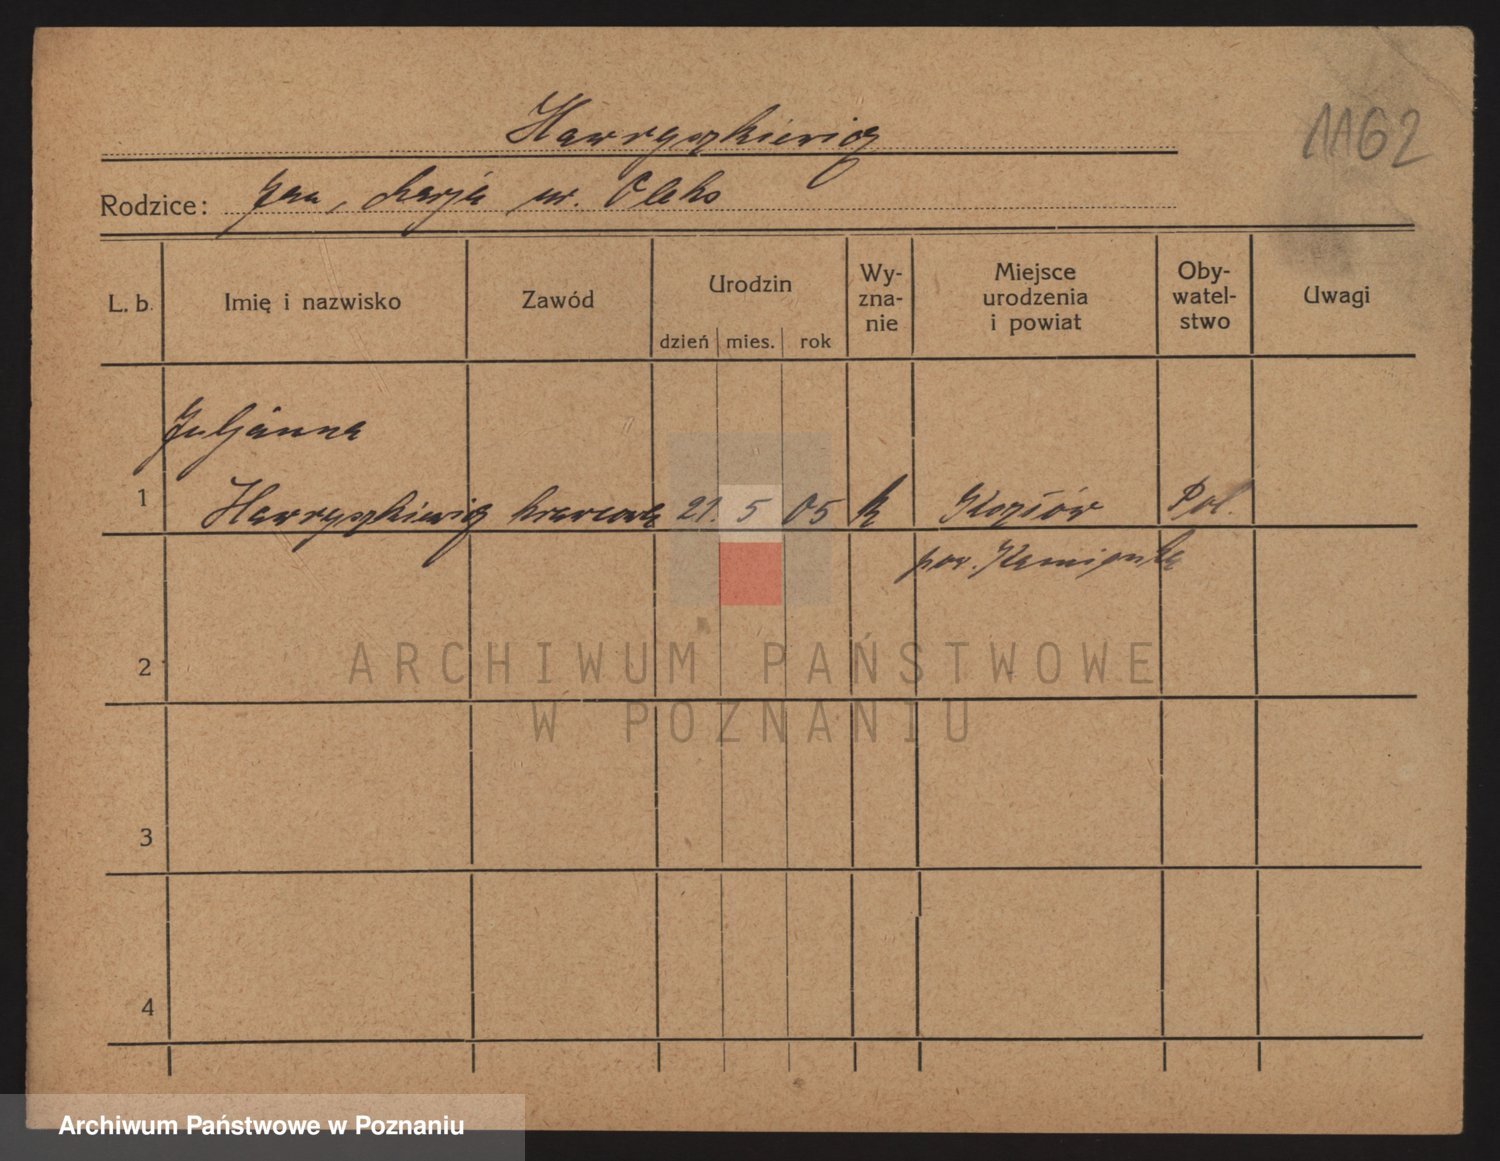 Hawryszkiewicz
1162
Rodzice: Jan, Marja ur. Oleks
L. b. Imię i nazwisko Zawód Urodzin Wy-zna-nie Miejsce urodzenia i powiat Oby-watel-stwo Uwagi
dzień mies. rok
Juljanna
1 Hawryszkiewicz krawcowa 21. 5 05 k Pol.
pow. Kamionka
2
ARCHIWUM PAŃSTWOWE
W POZNANIU
3
4
Archiwum Państwowe w Poznaniu